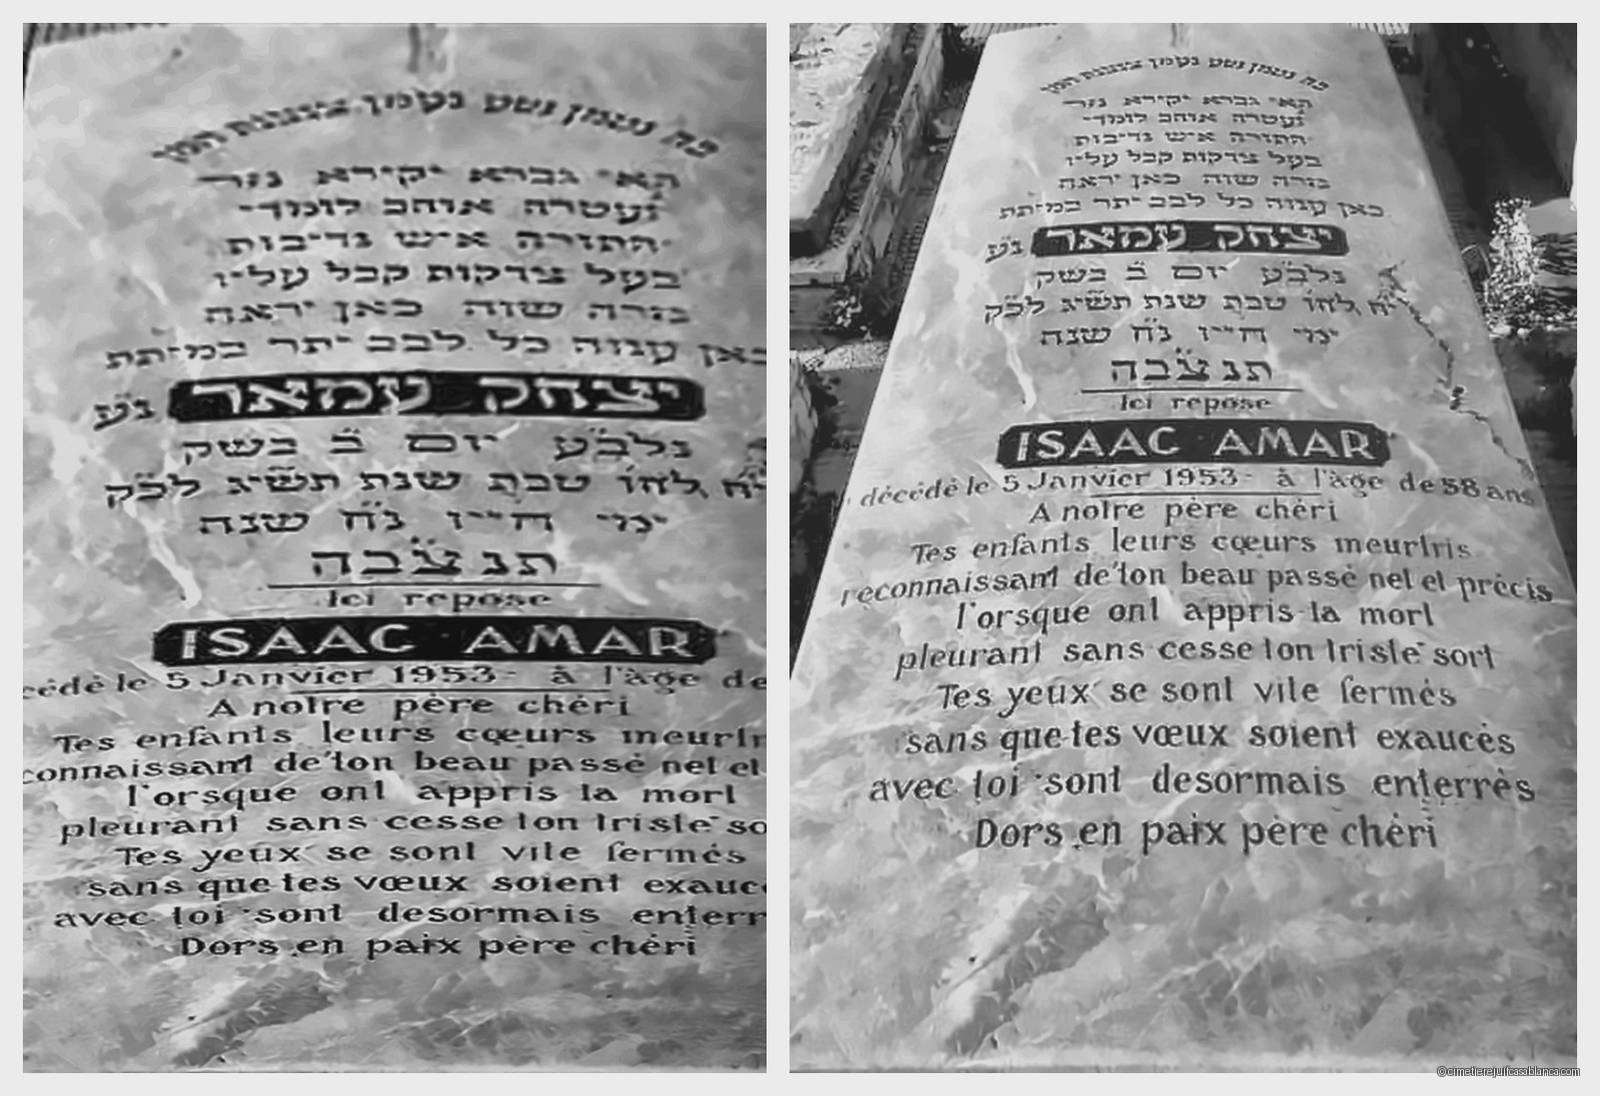 פה נטמן נטמן צנצנת המן
האי גברא יקירא נזר
ועטרה אוהב לומדי
התורה איש נדיבות
בעל צדקות קבל עליו
גזרה שוה כאן יראה
כאן ענוה כל לבב יתר במיתת
יצחק עמאר נ״ע
נלב״ע יום ב׳ בשק
י״ח לחו׳ טבת שנת תשי״ג לפ״ק
ימי חייו נ״ח שנה
תנצבה
Ici repose
ISAAC AMAR
cédé le 5 Janvier 1953 - à l'âge de
A notre père chéri
Tes enfants leurs cœurs meurtr
connaissant de ton beau passé net et
l'orsque ont appris la mort
pleurant sans cesse ton triste so
Tes yeux se sont vite fermés
sans que tes vœux soient exauc
avec toi sont desormais enterr
Dors en paix père chéri
פה נטמן נטמן צנצנת המן
האי גברא יקירא נזר
ועטרה אוהב לומדי
התורה איש נדיבות
בעל צדקות קבל עליו
גזרה שוה כאן יראה
כאן ענוה כל לבב יתר במיתת
יצחק עמאר נ״ע
נלב״ע יום ב׳ בשק
י״ח לחו׳ טבת שנת תשי״ג לפ״ק
ימי חייו נ״ח שנה
תנצבה
Ici repose
ISAAC AMAR
décédé le 5 Janvier 1953 - à l'âge de 58 ans
A notre père chéri
Tes enfants leurs cœurs meurtris
reconnaissant de ton beau passé net et précis
l'orsque ont appris la mort
pleurant sans cesse ton triste sort
Tes yeux se sont vite fermés
sans que tes vœux soient exaucés
avec toi sont desormais enterrés
Dors en paix père chéri
©cimetierejuifcasablanca.com